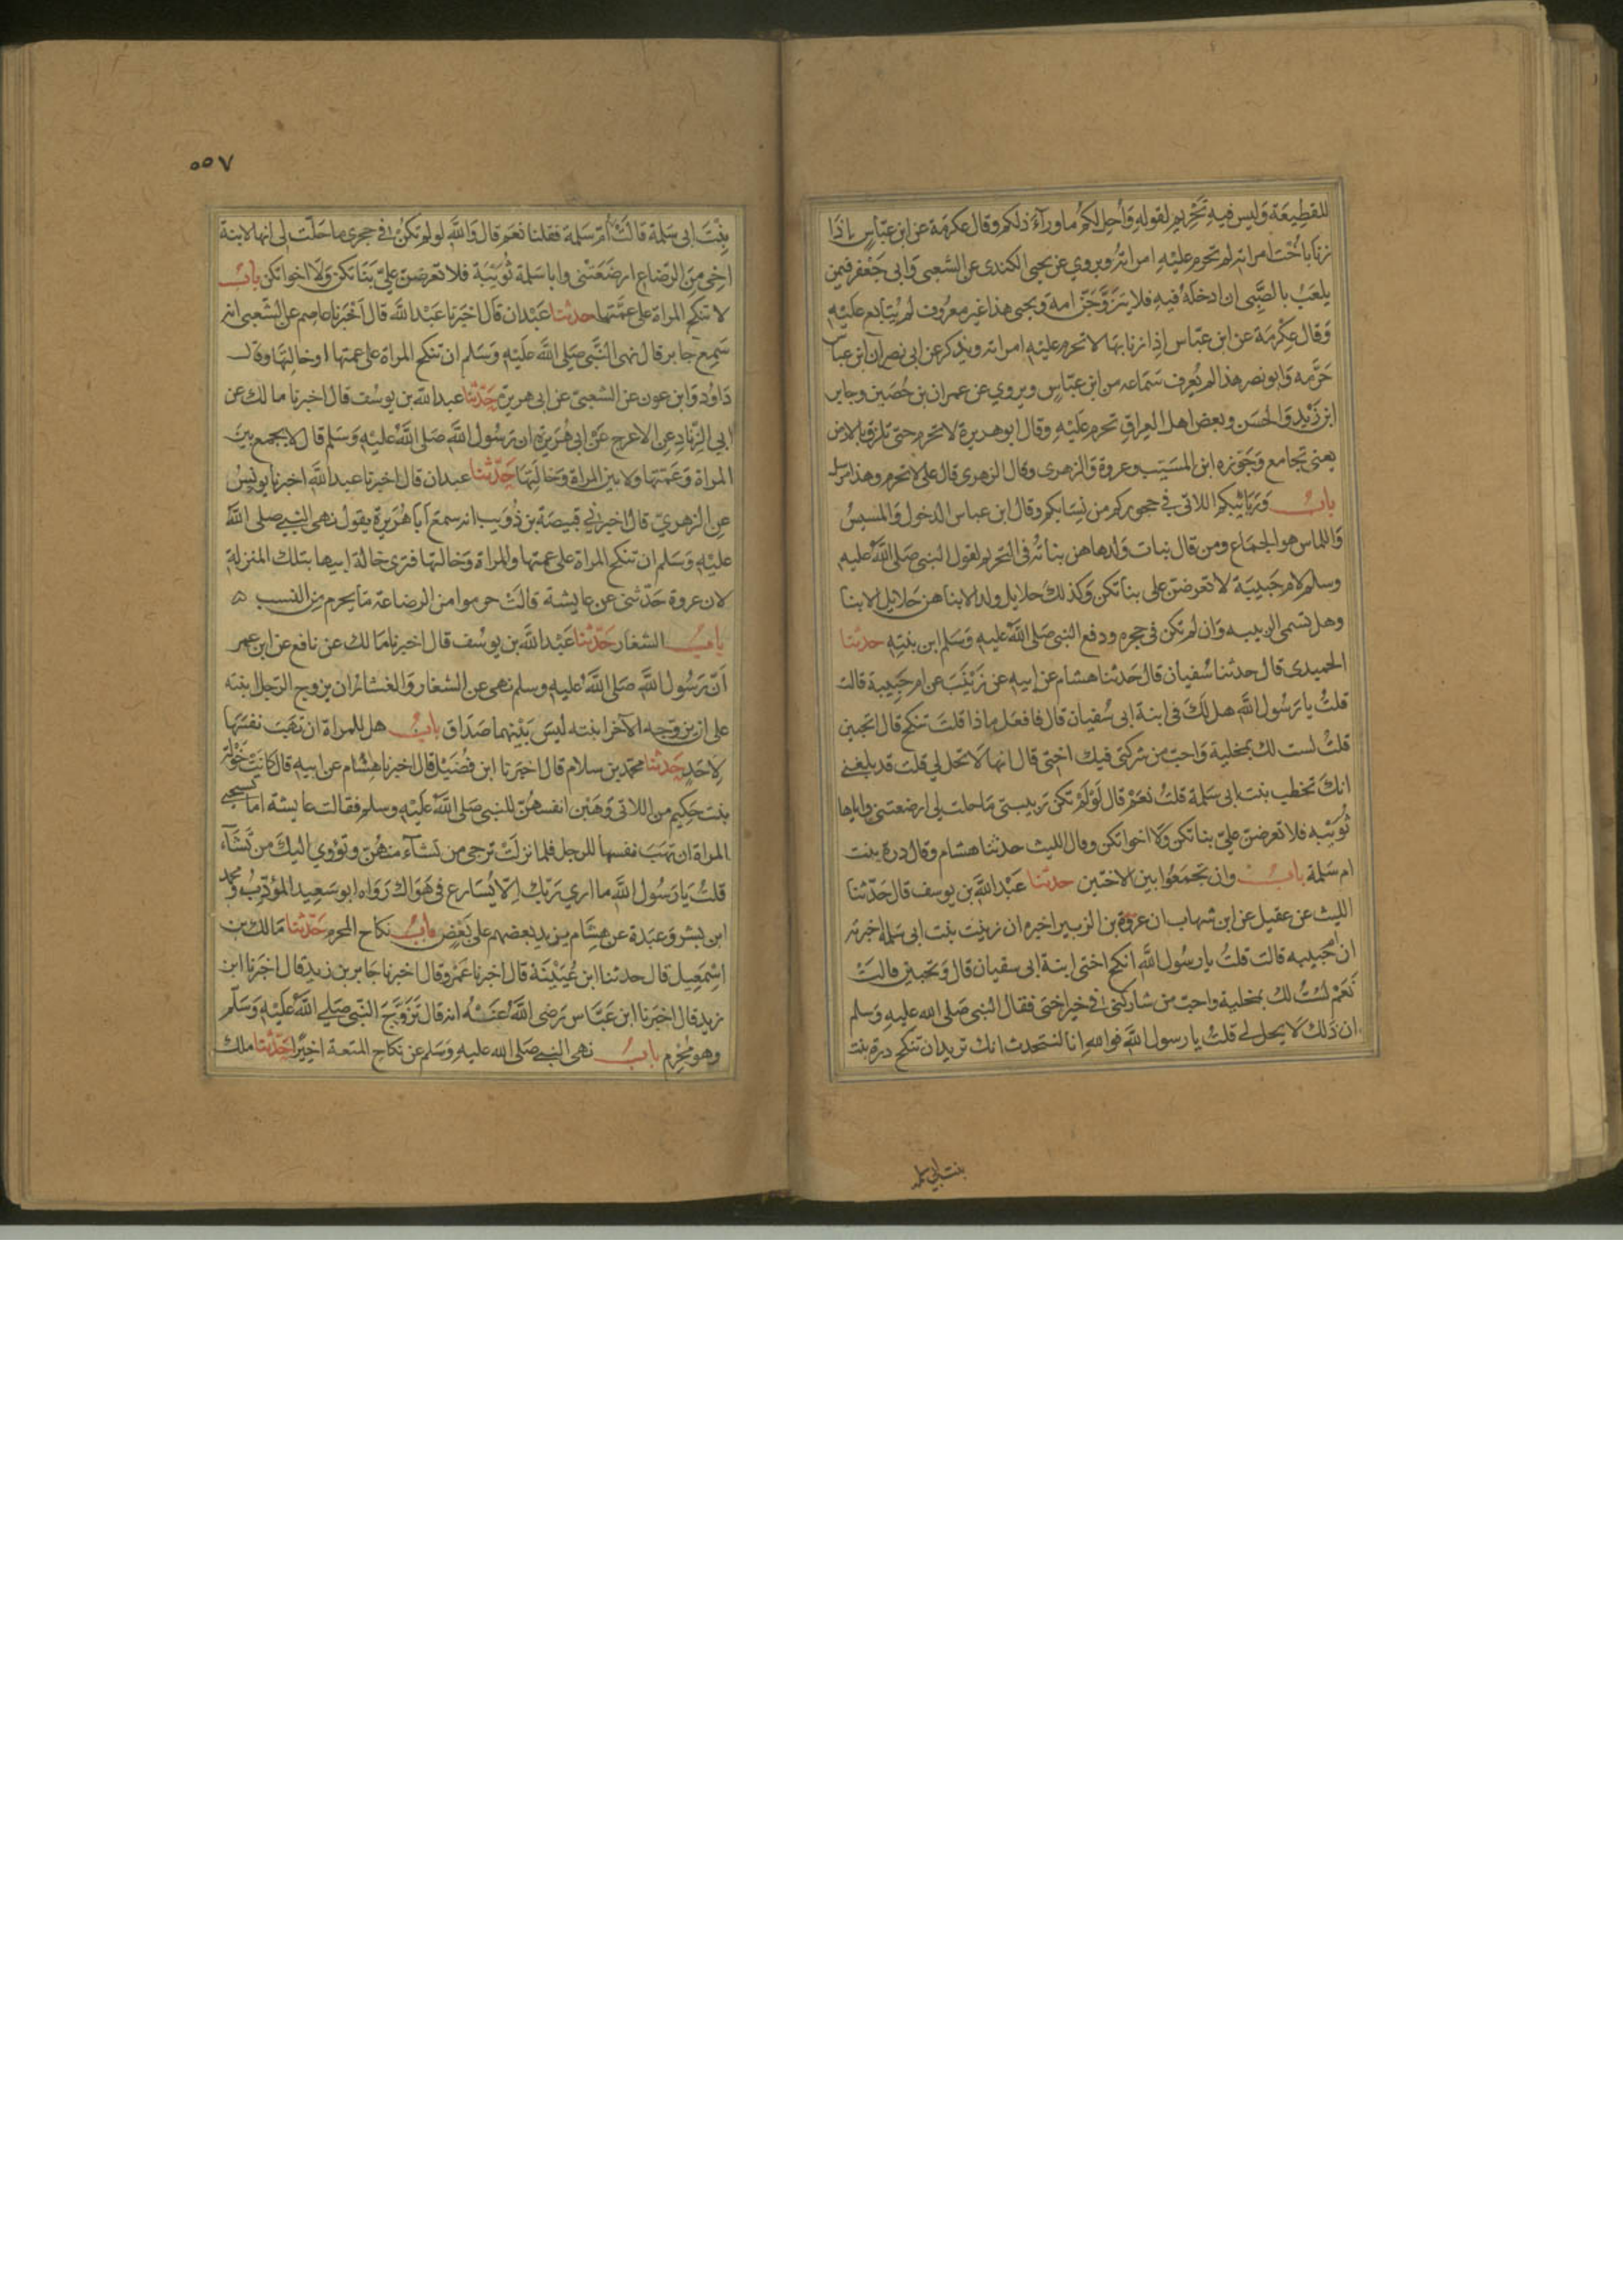 للقطيعَة وَليس فيهِ تَحْرِيم لقولهِ وَأُحِلَّ لكُم ماورآءَ ذلكم وقال عكرمَة عن ابن عبّاسٍ اِذَا
زنا بأخْت امراته لم تحرم عليْهِ امراتُهُ ويروي عن يحيى الكندى عن الشعبى وَابى جَعْفر فيمن
يلعَبُ بالصَّبِى ان ادخلهُ فيهِ فلا يتزوَّجَنَّ امه وَيحيى هذا غير معرُوف لم يُتابع علَيْهِ
وَقال عِكْرمَة عن ابن عبّاس اِذا زنا بهَا لا تحرم عليْهِ امراته ويذكر عن ابى نصر ان ابن عباس
حَرَّمه وَابو نصر هذا لم يُعرف سَمَاعه من ابن عبّاسٍ ويروي عن عمران بن حُصَين وجابر
ابن زَيْد وَالحسَن وبعض اهل العراقِ تحرم علَيْهِ وَقال ابو هريرة لا تحرم حتى تلزق بالارض
يعنى تجامع وَجَوّزه ابن المسَيّب وعروة وَالزهرى وقال الزهرى قال على لا تحرم وهذا مرسل
بابُ وَرَبَائبكم اللاتى في حجوركم من نِسَايكم وقال ابن عباس الدخول وَالمسيسُ
وَاللماس هو الجمَاع ومن قال بنات وَلدها هن بناتُهُ في التحريم لقول النبى صَلى اللهُ عليه
وسلم لام حَبيبَة لا تعرضنّ على بناتكن وَكذلكَ حلايل ولد الابنا هن حَلايل الابنا
وهل تسمى الربيبه وَان لم تكن في حجره ودفع النبى صَلى اللهُ عليهِ وَسَلم ابن بنتِهِ حدثنا
الحميدى قال حدثنا سُفيان قال حَدثنا هشام عن ابيهِ عن زَيْنَبَ عن ام حَبِيبة قالت
قلتُ يا رَسُول اللهِ هل لَكَ فى ابنة ابى سُفيان قال فافعَل ماذا قلتَ تنكح قال اتحبين
قلتُ لست لك بمخلية وَاحبّ من شركتى فيك اختى قال انها لا تحل لي قلت قد بلغنى
انكَ تخطب بنت ابى سَلمة قلتُ نعَمْ قال لَوْ لَمْ تكن ربيبتى مَا حلت لى ارضعتنى واباها
ثُوَيْبه فلا تعرضنّ عليّ بناتكن وَلا اخواتكن وقال الليث حدثنا هشام وقال درة بنت
ام سَلمة بابُ وان تجمَعُوا بين الاختين حدثنا عَبْد الله بن يوسف قال حَدّثنا
الليث عن عقيل عن ابن شهاب ان عروة بن الزبير اخبره ان زينت بنت ابى سَلمة اخبرته
ان ام حَبيبه قالت قلتُ يا رسُول اللهِ انكح اختى ابنة ابى سفيان قال وَتحبين قالتْ
نَعَمْ لسْتُ لك بمخلية واحبّ من شاركنى في خير اختى فقال النبى صَلى الله عليهِ وَسلم
ان ذَلك لَا يحل لى قلتُ يا رسول اللهِ فو اللهِ انا لنتحدث انك تريد ان تنكح درة بنت
بنت ابي سلمة
٥٥٧
بِنْتَ ابى سَلمة قالَتْ اُمّ سَلمة فقلنا نعَم قال وَاللهِ لو لم تكنْ في حجرى ما حَلّت لى انها لابنة
اخِى مِنَ الرّضاعِ ارضَعَتْنى وابا سَلمة ثُوَيْبَة فلا تعرضنَ عليّ بَنَاتكن وَلَا اخواتكن بابُ
لا تنكح المراة على عمَّتها حدثنا عَبْدان قال اخبَرنا عَبْد الله قال اخْبَرنا عاصم عن الشعبى انه
سَمِعَ جابر قال نهى النَّبى صَلى الله عليْهِ وَسَلم ان تنكح المراة على عمتها او خالتهَا وقال
دَاوُد وَابن عون عن الشعبىّ عن ابى هريرة حَدّثنا عبد الله بن يوسُف قال اخبرنا مالك عن
ابي الزِّنادِ عنِ الاعرج عَنْ ابى هُرَيرة ان رَسُول اللهِ صَلى اللهُ عليْهِ وَسَلم قال لا يجمع بين
المراة وَعَمتهَا ولا بين المراة وَخالَتِهَا حَدّثنا عبدان قال اخبرنا عبد اللهِ اخبرنا يونسُ
عن الزهريّ قال اخبرنى قبيصَة بن ذُوَيب انه سمعَ ابا هُرَيرة يقول نهى النبى صلى اللهُ
عليْهِ وَسَلم ان تنكح المراة على عمتها والمراة وَخالتها فترى خالة ابيها بتلك المنزلةِ
لان عروة حَدّثنى عن عايشة قالَتْ حرموا من الرضاعة مَا يحرم مِن النسب ه
بابُ الشغار حَدّثنا عَبْد الله بن يوسُف قال اخبرنا مَالك عن نافع عن ابن عمر
اَنّ رَسُول اللهِ صَلى اللهُ عليهِ وسلم نهى عن الشغار وَالشغار ان يزوج الرّجل ابنته
على ان يزوّجه الآخر ابنته ليسَ بَيْنهما صَدَاق بابُ هل للمراة ان تهَبَ نفسَهَا
لِاحَدٍ حَدثنا محمّد بن سلام قال اخبرنا ابن فُضَيْل قال اخبرنا هِشام عن ابيهِ قال كانَتْ خَوْلَة
بنت حَكيم من اللاتى وَهَبْن انفسهُنّ للنبى صَلى اللهُ عَلَيْهِ وسلم فقالت عايشة اما تستحيى
المراة ان تهَبَ نفسهَا للرجل فلما نزلَتْ ترجى من تشآء منهُنّ وتؤوي اليكَ من تَشَآء
قلتُ يَا رَسُول اللهِ ما ارى ربّك اِلّا يُسَارع فى هَوَاك رَوَاه ابو سَعِيد المؤدّبُ ومحمد
ابن بشر وَعبدَة عن هِشَام يزيد بعضهم على بَعْضٍ بابُ نكاح المحرم حَدّثنا مَالك بن
اسْمعِيل قال حدثنا ابن عُيَيْنَة قال اخبرنا عَمْرو قال اخبرنا جَابر بن زيد قال اخبَرنا ابن
زيد قال اخبَرنا ابن عَبَّاس رَضى اللهُ عَنْهُ انه قال تَزَوّجَ النّبى صَلى اللهُ عَلَيْهِ وَسَلّم
وهو مُحْرِم بابُ نهى النبى صَلى الله عليهِ وَسَلم عن نكاح المتعة اخِيرًا حَدّثنا ملك